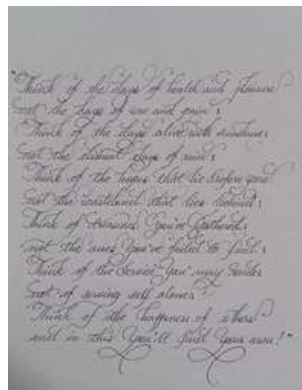 "Think of the days of health and pleasure
not the days of woe and pain;
Think of the days alive with sunshine;
not the dismal days of rain;
Think of the hopes that lie before you
not the wasteland that lies behind;
Think of treasures you've gathered;
not the ones you've failed to find;
Think of the service you may render
not of serving self alone;
Think of the happiness of others
and in this you'll find your own!"